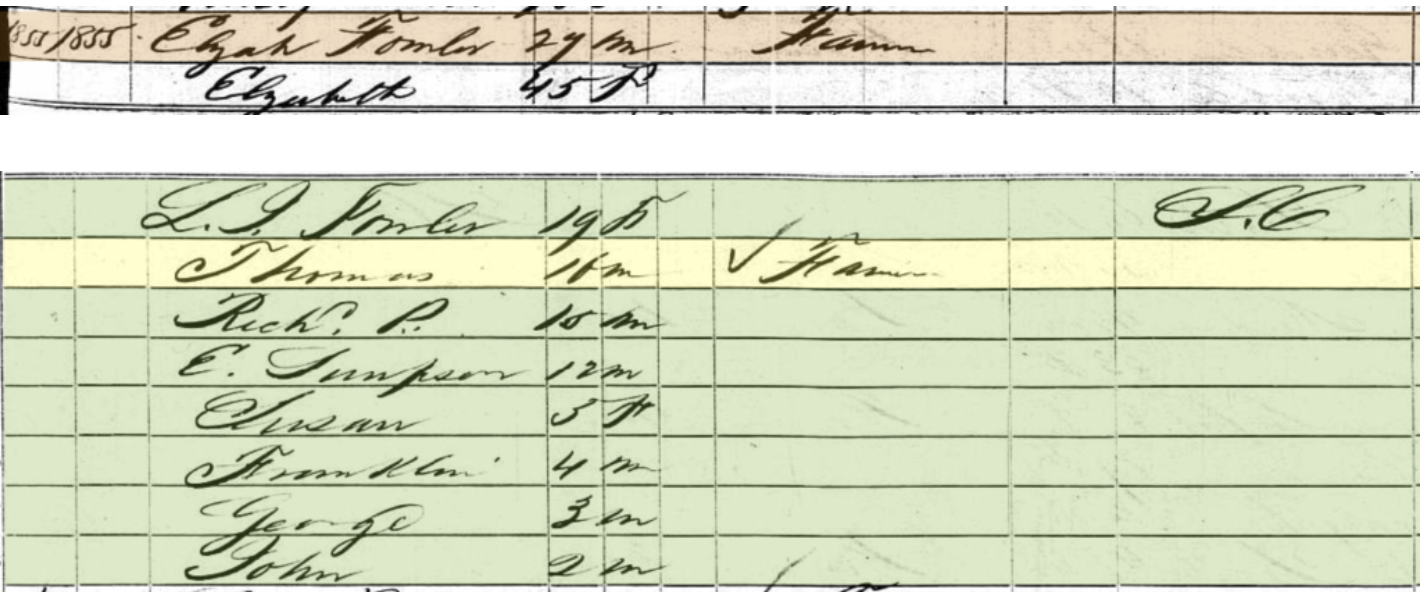 1855/1855 Elijah Fowler 29 m Farmer
Elizabeth 45 F
L. J. Fowler 19 F S.C
Thomas 16 m ✓ Farmer
Richd. P. 15 m
E. Simpson 12 m
Susan 5 F
Franklin 4 m
George 3 m
John 2 m